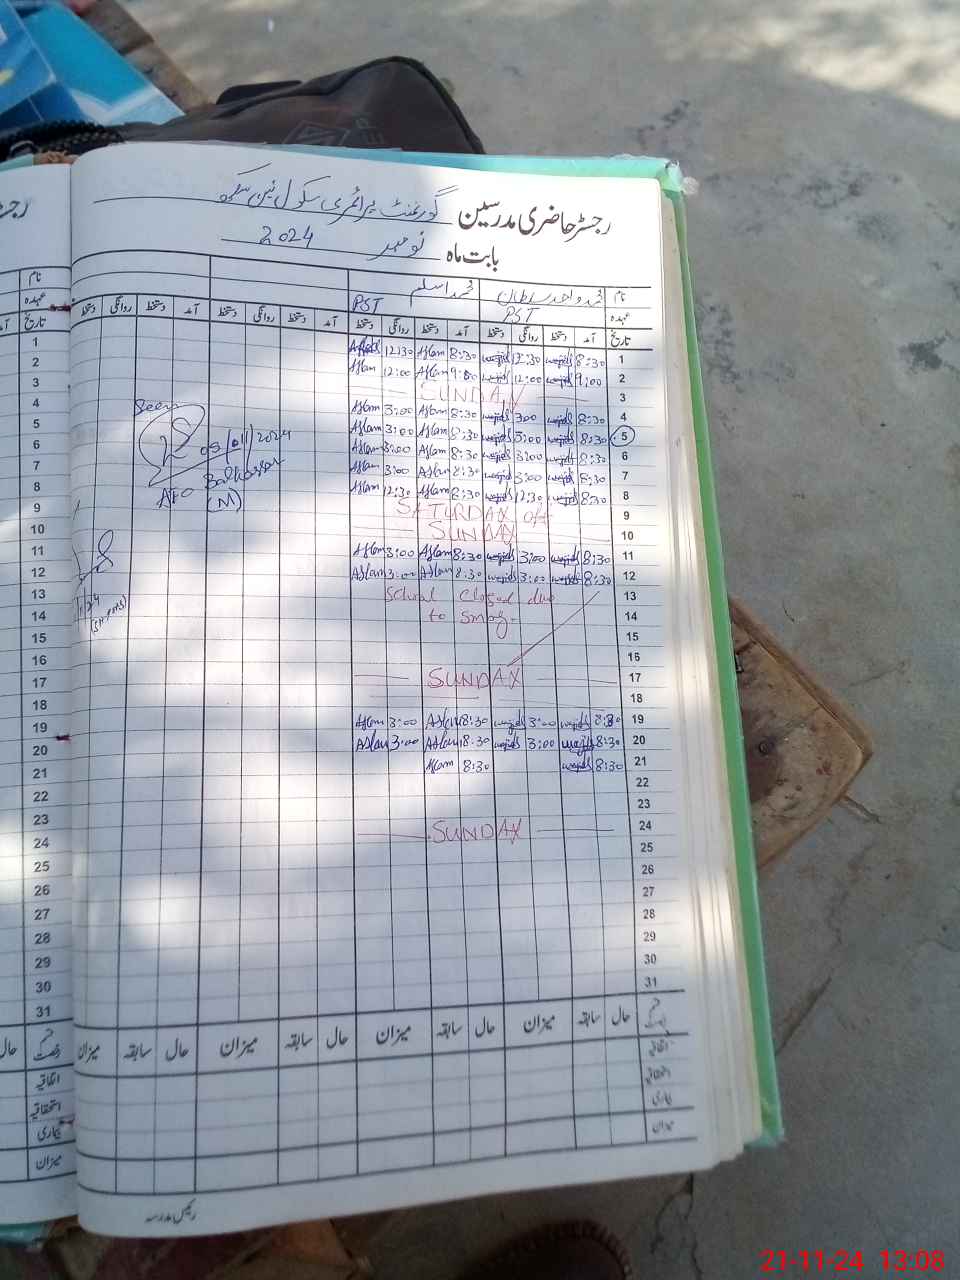 رجسٹر حاضری مدرسین گورنمنٹ پرائمری سکول
بابت ماہ نومبر 2024
نام محمد واجد سلطان محمد اسلم
عہدہ PST PST
تاریخ آمد دستخط روانگی دستخط آمد دستخط روانگی دستخط آمد دستخط روانگی دستخط آمد دستخط روانگی دستخط
1 8:30 wajid 12:30 wajid 8:30 Aslam 12:30 Aslam
2 9:00 wajid 12:00 wajid 9:00 Aslam 12:00 Aslam
3 SUNDAY
4 8:30 wajid 3:00 wajid 8:30 Aslam 3:00 Aslam
5 8:30 wajid 3:00 wajid 8:30 Aslam 3:00 Aslam
6 8:30 wajid 3:00 wajid 8:30 Aslam 3:00 Aslam
7 8:30 wajid 3:00 wajid 8:30 Aslam 3:00 Aslam
8 8:30 wajid 12:30 wajid 8:30 Aslam 12:30 Aslam
9 SATURDAY off
10 SUNDAY
11 8:30 wajid 3:00 wajid 8:30 Aslam 3:00 Aslam
12 8:30 wajid 3:00 wajid 8:30 Aslam 3:00 Aslam
13 School closed due
14 to smog.
15
16
17 SUNDAY
18
19 8:30 wajid 3:00 wajid 8:30 Aslam 3:00 Aslam
20 8:30 wajid 3:00 wajid 8:30 Aslam 3:00 Aslam
21 8:30 wajid 8:30 Aslam
22
23
24 SUNDAY
25
26
27
28
29
30
31
Seen
05/11/2024
AEO Balkassar
(M)
قسم رخصت حال سابقہ میزان حال سابقہ میزان حال سابقہ میزان حال سابقہ میزان
اتفاقیہ
استحقاقیہ
بیماری
میزان
رئیس مدرسہ
نام
عہدہ
تاریخ
1
2
3
4
5
6
7
8
9
10
11
12
13
14
15
16
17
18
19
20
21
22
23
24
25
26
27
28
29
30
31
قسم رخصت حال
اتفاقیہ
استحقاقیہ
بیماری
میزان
21-11-24 13:08